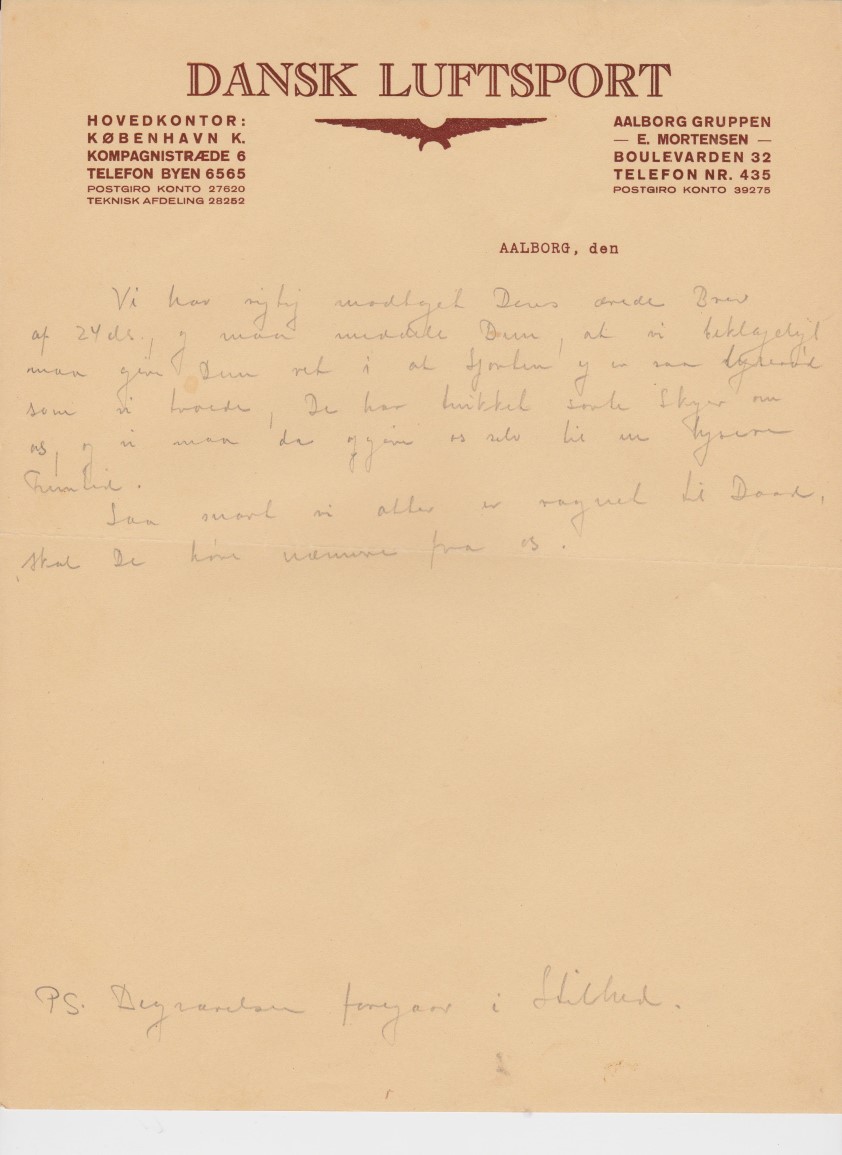 DANSK LUFTSPORT
HOVEDKONTOR:
KØBENHAVN K.
KOMPAGNISTRÆDE 6
TELEFON BYEN 6565
POSTGIRO KONTO 27620
TEKNISK AFDELING 28252
AALBORG GRUPPEN
— E. MORTENSEN —
BOULEVARDEN 32
TELEFON NR. 435
POSTGIRO KONTO 39275
AALBORG, den
Vi har rigtig modtaget Deres ærede Brev
af 24 ds., og maa meddele Dem, at vi beklageligt
maa give Dem ret i at ej er saa
som vi troede, De har trukket sorte Skyer om
os, og vi maa da opgive os selv til en lysere
Fremtid.
Saa snart vi atter er vaagnet til Daad,
skal De høre nærmere fra os.
PS. Begravelsen foregaar i Stilhed.